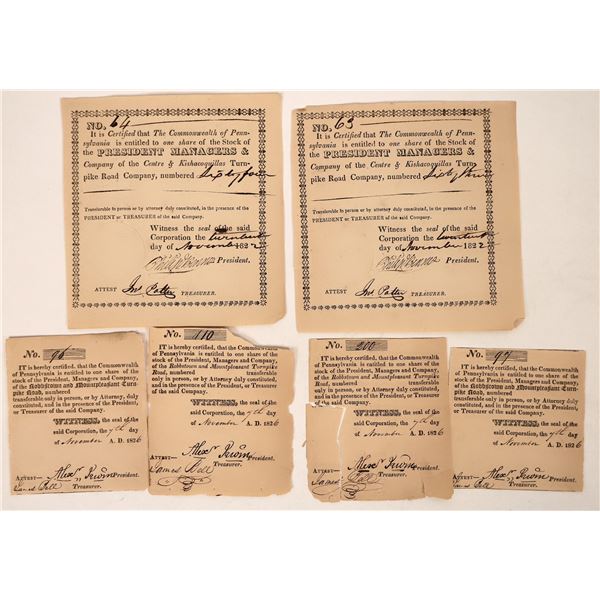 NO. 64
It is Certified that The Commonwealth of Penn-
sylvania is entitled to one share of the Stock of
the PRESIDENT MANAGERS &
Company of the Centre & Kishacoquillas Turn-
pike Road Company, numbered Sixty four
Transferable in person or by attorney duly constituted, in the presence of the
PRESIDENT or TREASURER of the said Company.
Witness the seal of the said
Corporation the
day of November 1822
President.
ATTEST Jno. Potter TREASURER.
NO. 63
It is Certified that The Commonwealth of Penn-
sylvania is entitled to one share of the Stock of
the PRESIDENT MANAGERS &
Company of the Centre & Kishacoquillas Turn-
pike Road Company, numbered Sixty three
Transferable in person or by attorney duly constituted, in the presence of the
PRESIDENT or TREASURER of the said Company.
Witness the seal of the said
Corporation the
day of November 1822
President.
ATTEST Jno. Potter TREASURER.
No. 96
IT is hereby certified, that the Commonwealth
of Pennsylvania is entitled to one share of the
stock of the President, Managers and Company,
of the Robbstown and Mountpleasant Turn-
pike Road, numbered transferable
only in person, or by Attorney duly
constituted, and in the presence of the President,
or Treasurer of the said Company.
WITNESS, the seal of the
said Corporation, the 7th day
of November A. D. 1826
ATTEST— Alexr. President.
James Bell Treasurer.
No. 110
IT is hereby certified, that the Commonwealth
of Pennsylvania is entitled to one share of the
stock of the President, Managers and Company,
of the Robbstown and Mountpleasant Turnpike
Road, numbered transferable
only in person, or by Attorney duly constituted,
and in the presence of the President or Treasurer
of the said Company.
WITNESS, the seal of the
said Corporation, the 7th day
of November A. D. 1826
ATTEST— Alexr. President.
James Bell Treasurer.
No. 200
IT is hereby certified, that the Commonwealth
of Pennsylvania is entitled to one share of the
stock of the President, Managers and Company,
of the Robbstown and Mountpleasant Turnpike
Road, numbered transferable
only in person, or by Attorney duly constituted,
and in the presence of the President or Treasurer
of the said Company.
WITNESS, the seal of the
said Corporation, the 7th day
of November A. D. 1826
ATTEST— Alexr. President.
James Treasurer.
No. 97
IT is hereby certified, that the Commonwealth
of Pennsylvania is entitled to one share of the
stock of the President, Managers and Company,
of the Robbstown and Mountpleasant Turn-
pike Road, numbered transferable
only in person, or by Attorney duly
constituted, and in the presence of the President,
or Treasurer of the said Company.
WITNESS, the seal of the
said Corporation, the 7th day
of November A. D. 1826
ATTEST— Alexr. President.
James Bell Treasurer.